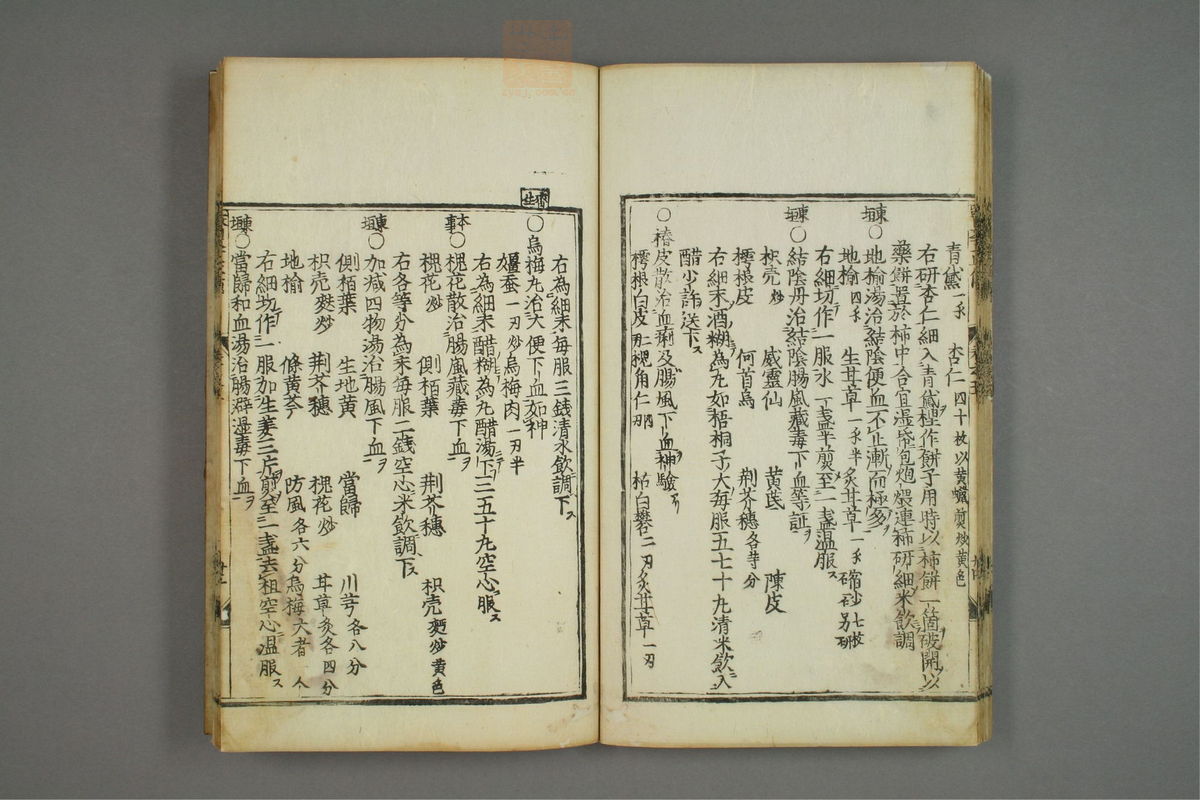 青黛一錢 杏仁四十枚以黄蠟煎炒黄色
右研杏仁細入青黛捏作餅子用時以柿餅一箇破開以
藥餅置於柿中合定湿帋包炮煨連柿研細米飲調
東垣〇地榆湯治結陰便血不止漸而極多
地榆四錢 生甘草一錢半炙甘草一錢縮砂七枚另研
右細切作一服水一盞半煎至一盞温服ス
東垣〇結陰丹治結陰腸風藏毒下血等証
枳壳炒 威靈仙 黄芪 陳皮
樗根皮 何首烏 荆芥穗各等分
右細末酒糊為丸如梧桐子大每服五七十丸清米飲入
醋少許送下ス
〇椿皮散治血痢及腸風下血神驗
樗根白皮 槐角仁 枯白礬二刃炙甘草一刃
右為細末每服三錢清水飲調下ス
濟世〇烏梅丸治大便下血如神
殭蚕一刃炒烏梅肉一刃半
右為細末醋糊為丸醋湯下三五十丸空心服ス
本事〇槐花散治腸風藏毒下血ヲ
槐花炒 側栢葉 荆芥穗 枳壳麪炒黄色
右各等分為末每服二錢空心米飲調下ス
東垣〇加减四物湯治腸風下血ヲ
側栢葉 生地黄 當歸 川芎各八分
枳壳麩炒 荆芥穗 槐花炒 甘草炙各四分
地榆 條黄芩 防風各六分烏梅大者
右細切作一服加生姜三片煎至一盞去粗空心温服ス
東垣〇當歸和血湯治腸澼湿毒下血ヲ